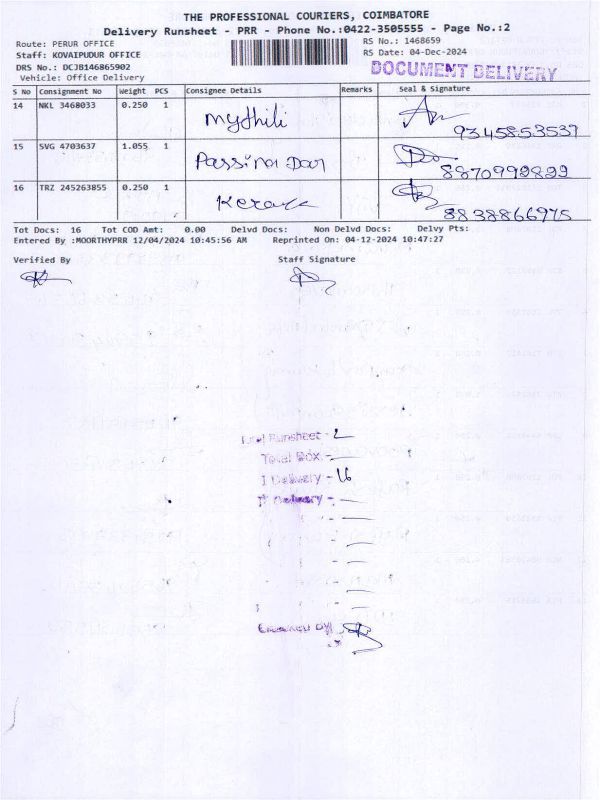 THE PROFESSIONAL COURIERS, COIMBATORE
Delivery Runsheet - PRR - Phone No.:0422-3505555 - Page No.:2
Route: PERUR OFFICE
RS No.: 1468659
Staff: KOVAIPUDUR OFFICE
RS Date: 04-Dec-2024
DRS No.: DCJB146865902
Vehicle: Office Delivery
DOCUMENT DELIVERY
S No Consignment No Weight PCS Consignee Details Remarks Seal & Signature
14 NKL 3468033 0.250 1 Mythili
9345853537
15 SVG 4703637 1.055 1
8870999899
16 TRZ 245263855 0.250 1
8838866975
Tot Docs: 16 Tot COD Amt: 0.00 Delvd Docs: Non Delvd Docs: Delvy Pts:
Entered By :MOORTHYPRR 12/04/2024 10:45:56 AM Reprinted On: 04-12-2024 10:47:27
Verified By Staff Signature
Total Runsheet - 2
Total Box -
I Delivery - 16
II Delivery -